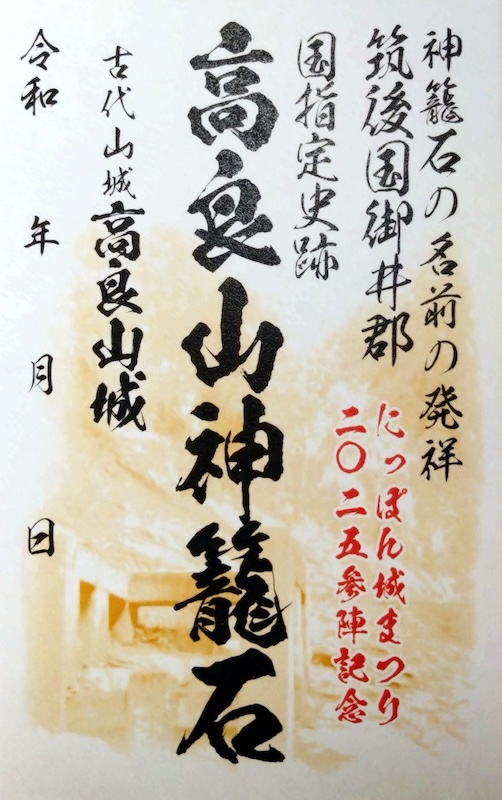 神籠石の名前の発祥
筑後国御井郡
にっぽん城まつり
二〇二五参陣記念
国指定史跡
高良山神籠石
古代山城高良山城
令和 年 月 日